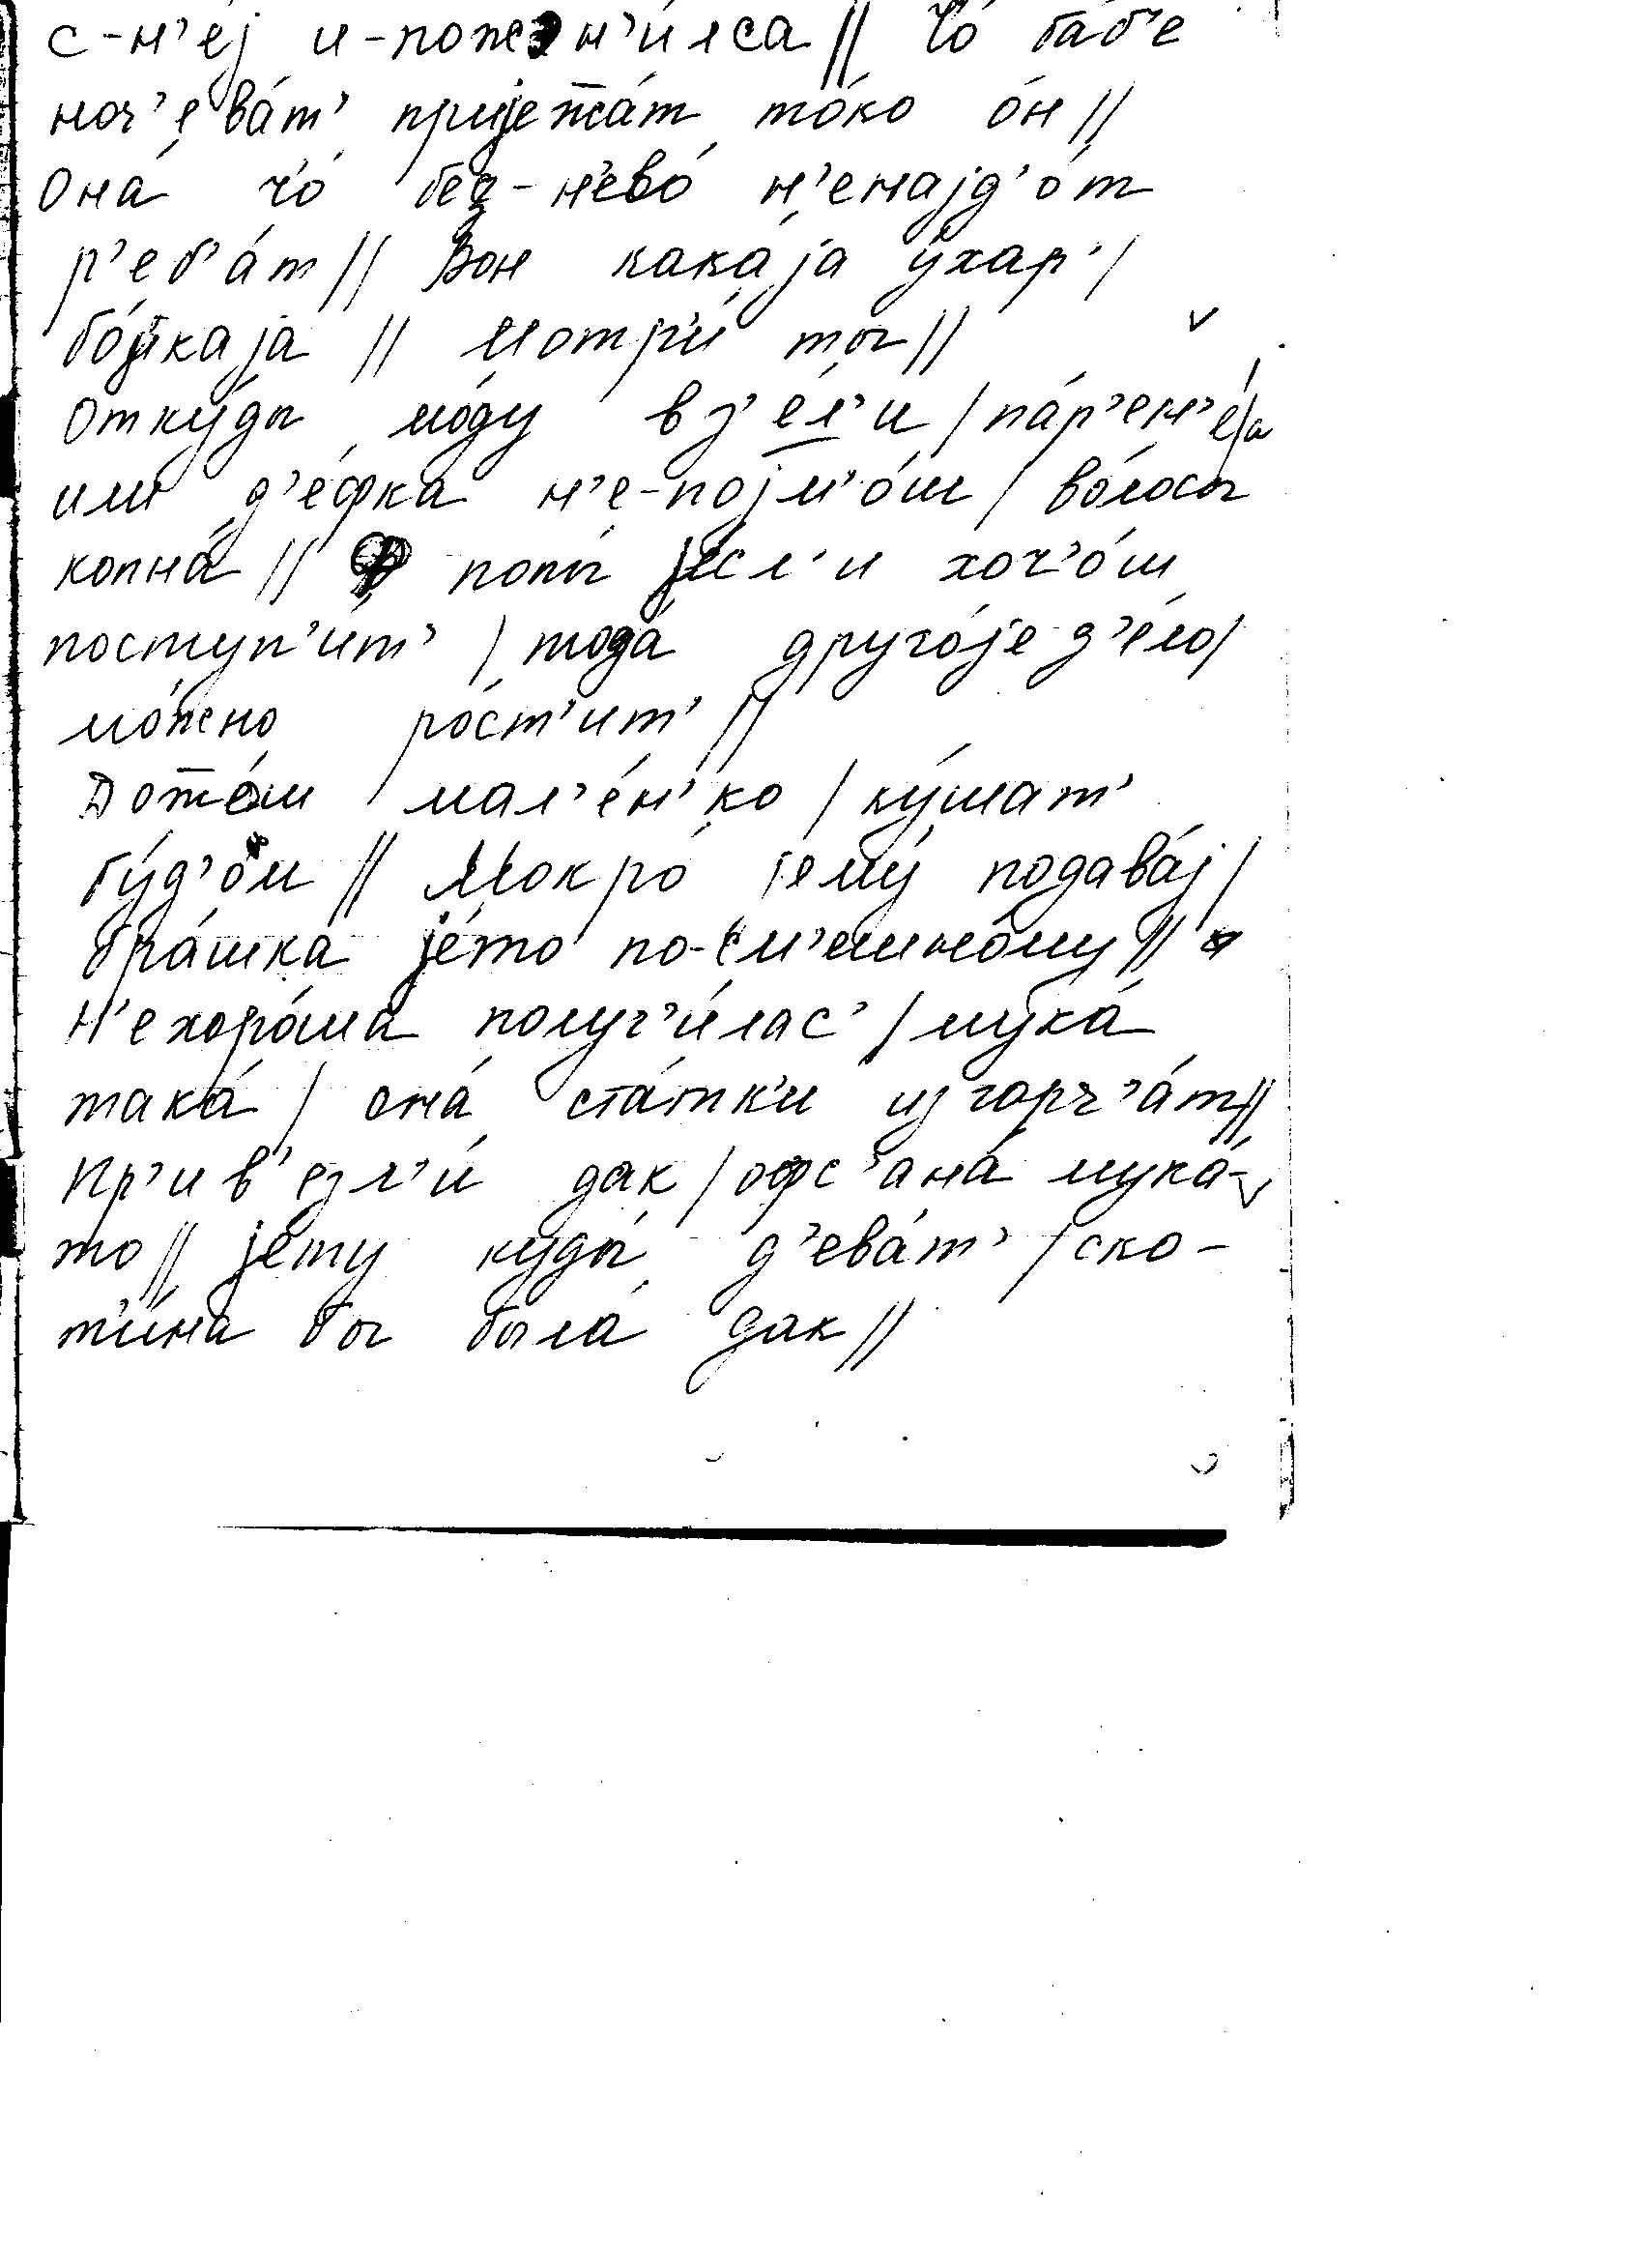 с-н’е́ј и-пожен’и́лса// Чо́ ба́б’е
ноч’ева́т’ пријежа́т то́ко о́н//
Она́ чо́ без-н’ево́ н’енајд’о́т
р’еб’а́т// Вон кака́ја у́хар’/
бо́јкаја // Мотр’и́ ты//
Отку́ды мо́ду вз’е́л’и /па́р’ен’
или д’е́фка н’е-појм’о́ш/ во́лосы
копна́// попы́ јесл’и хоч’о́ш
поступ’и́т’ /тода́ друго́је д’е́ло/
мо́жно ро́ст’ит’//
Дото́м мал’е́н’ко /ку́шат’
бу́д’ом// Мокро́ јему́ подава́ј/
бра́шка је́то по-см’ешно́му//
Н’ехоро́ша получ’и́лас’ /мука́
така́/ она́ ста́тк’и изгорч’а́т//
Пр’ив’езл’и́ дак/офс’ана́ мука́-
то// је́ту куды́ д’ева́т’ /ско-
т’и́на бы была́ дак//